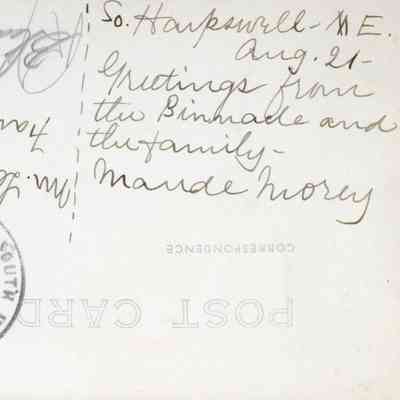 So. Harpswell - ME.
Aug. 21 -
Greetings from
the Binnacle and
the family -
Maude Morey
CORRESPONDENCE
POST CARD
SOUTH